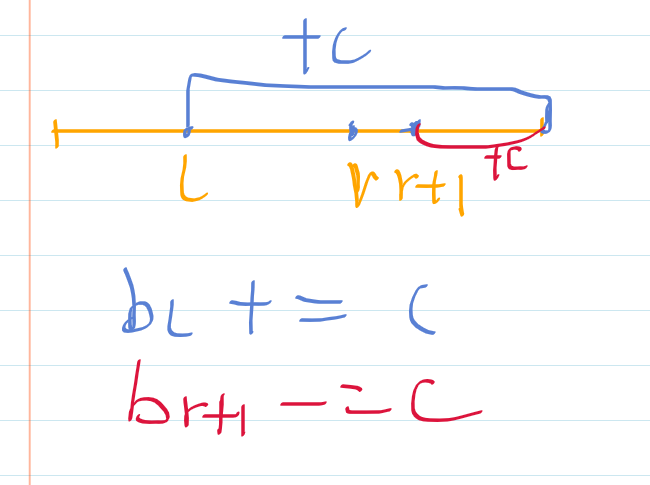 +c
+c
l r r+1
bl += c
br+1 -= c